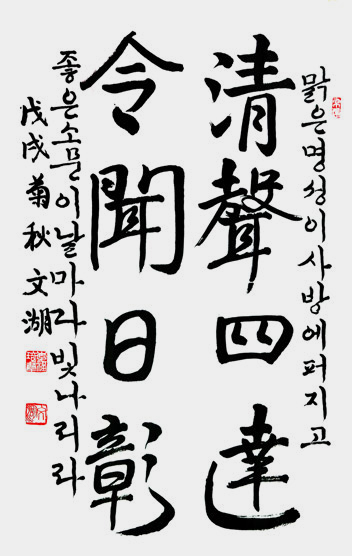 맑은 명성이 사방에 퍼지고
清聲四達
令聞日彰
좋은 소문이 날마다 빛나리라
戊戌菊秋 文湖